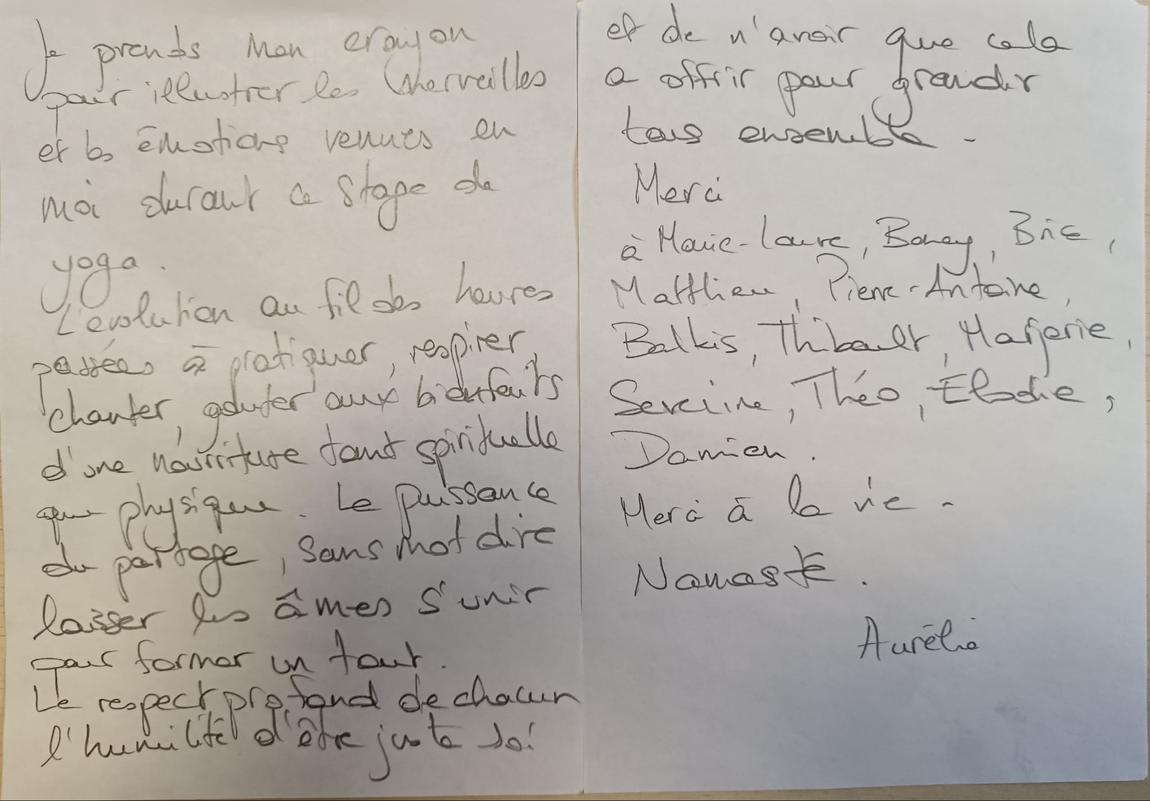 Je prends mon crayon
pour illustrer les merveilles
et les émotions venues en
moi durant ce stage de
yoga.
L'évolution au fil des heures
passées à pratiquer, respirer,
chanter, goûter aux bienfaits
d'une nourriture tant spirituelle
que physique. Le puissance
du partage, sans mot dire
laisser les âmes s'unir
pour former un tout.
Le respect profond de chacun
l'humilité d'être juste soi
et de n'avoir que cela
a offrir pour grandir
tous ensemble -
Merci
à Marie-Laure, Brice,
Matthieu, Pierre-Antoine,
Balkis, Thibault, Marjorie,
Severine, Théo, Élodie,
Damien.
Merci à la vie -
Namasté.
Aurélie